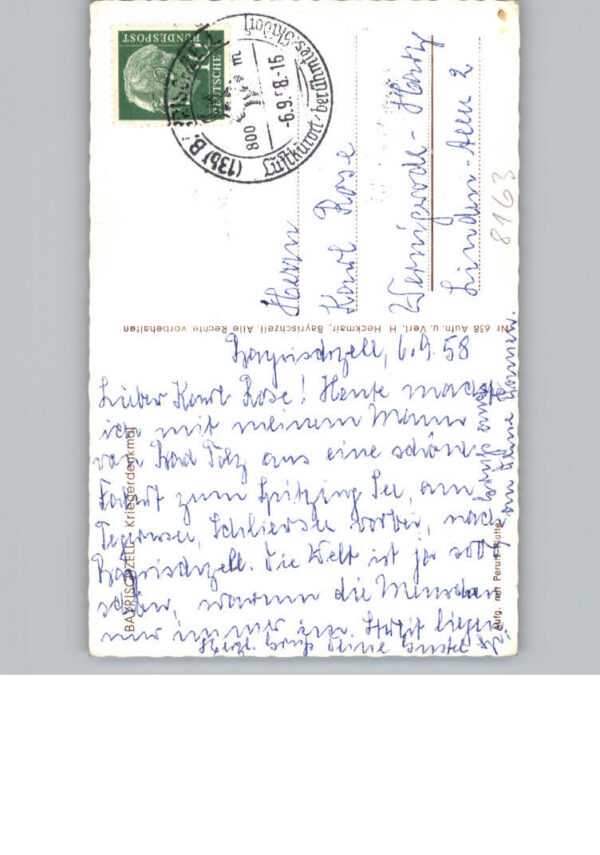 DEUTSCHE
BUNDESPOST
(13b)
800
m
-6.9.58.-16
Luftkurort, berühmtes Skidorf
Herrn
Karl Rose
Wernigerode-Harz
Linden-Allee 2
8163
Nr. 638 Aufn. u. Verl. H. Heckmair, Bayrischzell. Alle Rechte vorbehalten
BAYRISCHZELL Kriegerdenkmal
Bayrischzell, 6.9.58
Lieber Karl Rose! Heute machte
ich mit meinem Mann
von Bad Tölz aus eine schöne
Fahrt zum Spitzing See, am
Tegernsee, Schliersee vorbei, nach
Bayrischzell. Die Welt ist ja so
schön, warum die Menschen
nur immer im Streit liegen.
Herzl. Gruß Deine
Gruß auch
an Deine
Aufg. mit Perutz